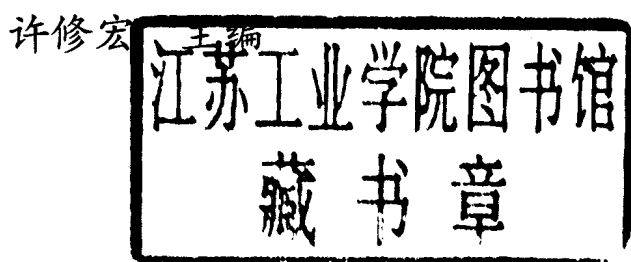 许修宏 主编
江苏工业学院图书馆
藏书章